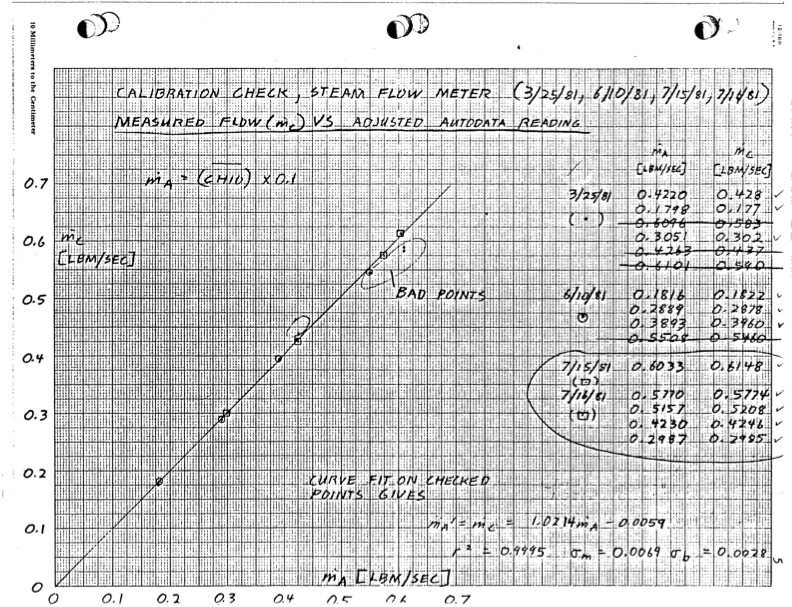 10 Millimeters to the Centimeter
CALIBRATION CHECK, STEAM FLOW METER (3/25/81, 6/10/81, 7/15/81, 7/16/81)
MEASURED FLOW (ṁc) VS ADJUSTED AUTODATA READING
ṁA = (CH10) X 0.1
ṁA ṁc
[LBM/SEC] [LBM/SEC]
3/25/81 0.4220 0.428 ✓
(·) 0.1798 0.177 ✓
0.6096 0.583
0.3051 0.302 ✓
0.4263 0.437
0.6101 0.590
6/10/81 0.1816 0.1822 ✓
0.2889 0.2878 ✓
0.3893 0.3960 ✓
0.5508 0.5460
7/15/81 0.6033 0.6148 ✓
7/16/81 0.5770 0.5774 ✓
0.5157 0.5208 ✓
0.4230 0.4246 ✓
0.2987 0.2985 ✓
0.7
0.6
ṁc
[LBM/SEC]
BAD POINTS
0.5
0.4
0.3
0.2
CURVE FIT ON CHECKED
POINTS GIVES
ṁA' = ṁc = 1.0214ṁA - 0.0059
0.1
r² = 0.9995 σm = 0.0069 σb = 0.0028
5
ṁA [LBM/SEC]
0
0 0.1 0.2 0.3 0.4 0.5 0.6 0.7